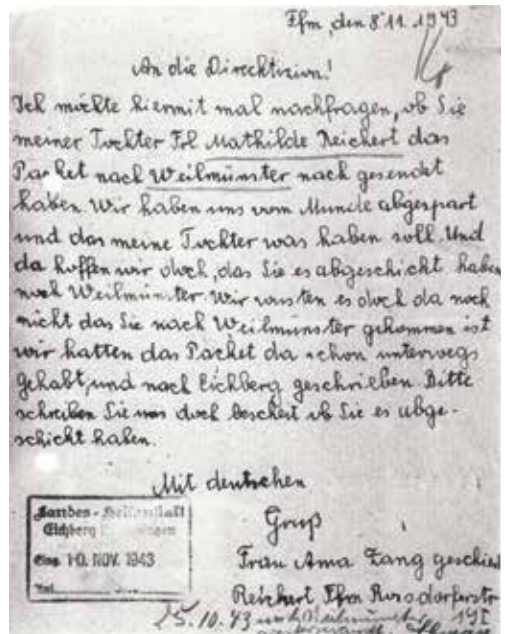 Ffm, den 8.11.1943
An die Direcktizion!
Ich möchte hiermit mal nachfragen, ob Sie
meiner Tochter Frl Mathilde Reichert das
Packet nach Weilmünster nach gesendet
haben. Wir haben uns vom Munde abgespart
und das meine Tochter was haben soll. Und
da hoffen wir doch, das Sie es abgeschickt haben
nach Weilmünster. Wir wusten es doch da noch
nicht das Sie nach Weilmünster gekommen ist
wir hatten das Packet da schon unterwegs
gehabt, und nach Eichberg geschrieben. Bitte
schreiben Sie uns doch bescheit ob Sie es abge-
schickt haben.
Mit deutschen
Gruß
Landes-Heilanstalt
Eichberg
Eing. 10. NOV. 1943
Frau Anna Zang geschied
Reichert Ffm Rossdorferstr
25.10.43 nach Weilmünster 19I